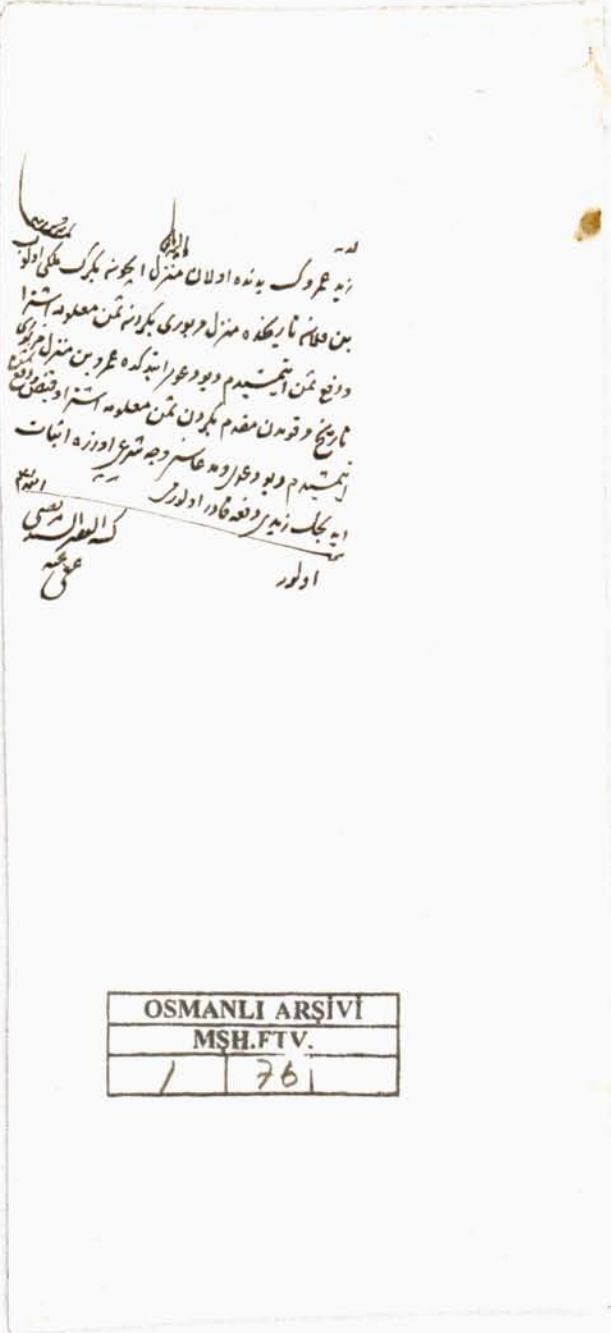 زيد عمروك يدنده اولان منزل ايچون بكرك ملكى اولوب
بن فلان تاريخده منزل مزبورى بكردن ثمن معلومه اشترا
و دفع ثمن ايتمشيدم ديو دعوا ايتدكده عمرو بن منزل مزبورى
تاريخ مقدم بكردن ثمن معلومه اشترا و قبض و دفع ثمن
ايتمشيدم ديو دعواسنى وجه شرعى اوزره اثبات
ايله زيدى دفعه قادر اولورمى
اولور
كتبه الفقير السيد مرتضى
عفى عنه
OSMANLI ARŞİVİ
MŞH.FTV.
1 76